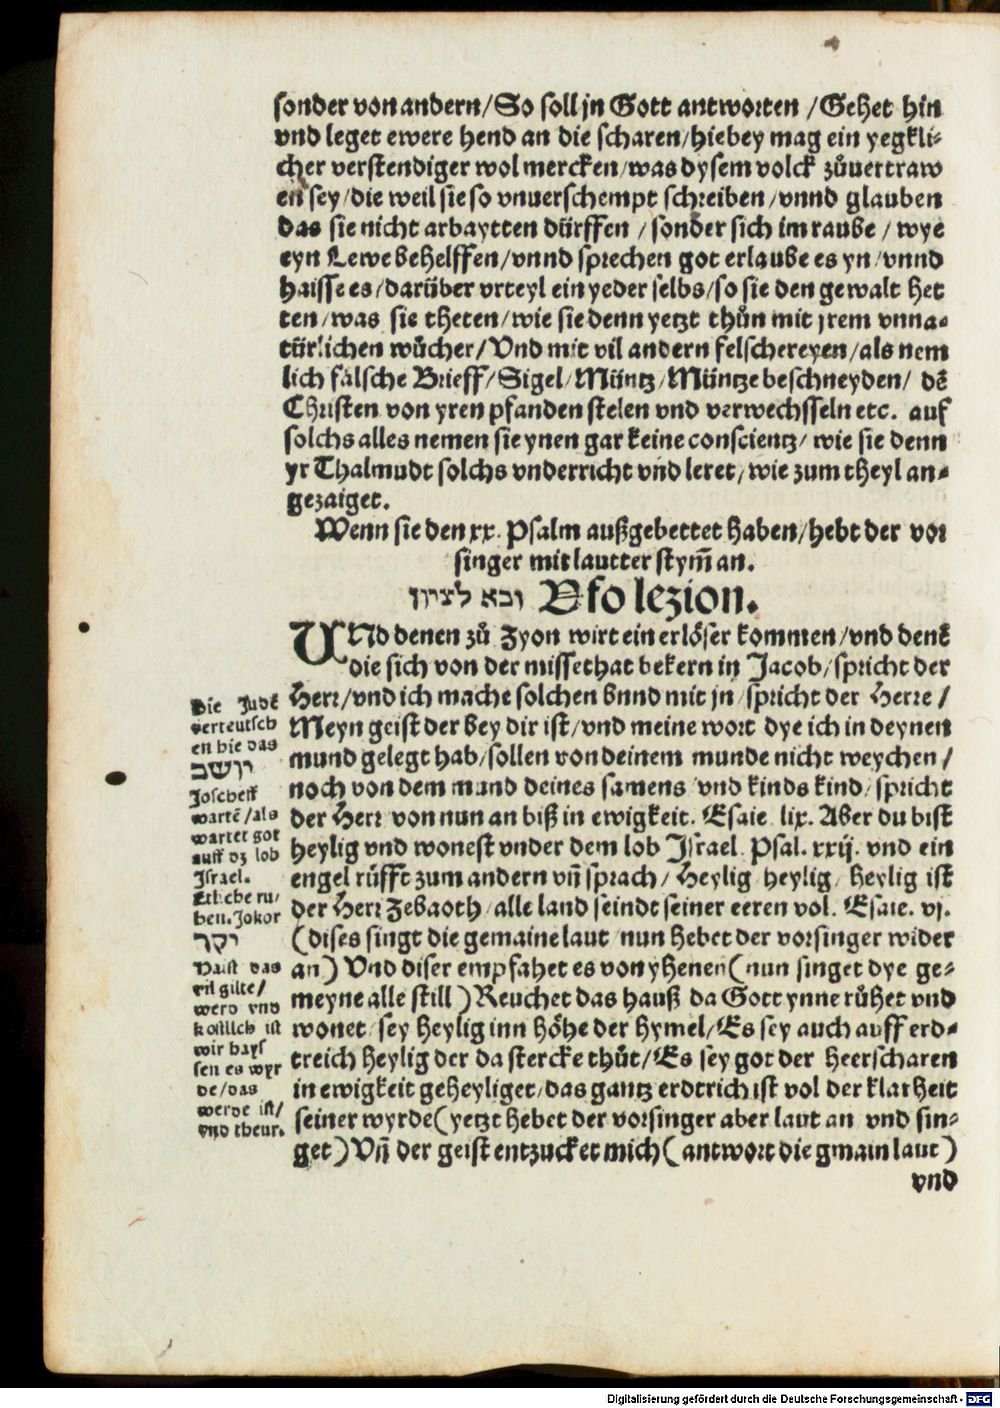 sonder von andern/So soll jn Gott antworten/Gehet hin
vnd leget ewere hend an die scharen/hiebey mag ein yegkli-
cher verstendiger wol mercken/was dysem volck zůuertraw
en sey/die weil sie so vnuerschempt schreiben/vnnd glauben
das sie nicht arbaytten dürffen/sonder sich im raube/wye
eyn Lewe behelffen/vnnd sprechen got erlaube es yn/vnnd
haisse es/darüber vrteyl ein yeder selbs/so sie den gewalt het
ten/was sie theten/wie sie denn yetzt thůn mit jrem vnna-
türlichen wůcher/Vnd mit vil andern felschereyen/als nem
lich falsche Brieff/Sigel/Müntz/Müntze beschneyden/dē
Christen von yren pfanden stelen vnd verwechsseln etc. auf
solchs alles nemen sie ynen gar keine conscientz/wie sie denn
yr Thalmudt solchs vnderricht vnd leret/wie zum theyl an-
gezaiget.
Wenn sie den xx. Psalm außgebettet haben/hebt der vor
singer mit lautter stym̄ an.
ובא לציון Vfo lezion.
VNd denen zů Zyon wirt ein erlöser kommen/vnd denē
die sich von der missethat bekern in Jacob/spricht der
Herr/vnd ich mache solchen bund mit jn/spricht der Herre/
Meyn geist der bey dir ist/vnd meine wort dye ich in deynen
mund gelegt hab/sollen von deinem munde nicht weychen/
noch von dem mund deines samens vnd kinds kind/spricht
der Herr von nun an biß in ewigkeit. Esaie lix. Aber du bist
heylig vnd wonest vnder dem lob Israel. Psal. xxij. vnd ein
engel rüfft zum andern vñ sprach/Heylig/heylig/heylig ist
der Herr Zebaoth/alle land seindt seiner eeren vol. Esaie. vj.
(dises singt die gemaine laut/nun hebet der vorsinger wider
an) Vnd diser empfahet es von yhenen(nun singet dye ge-
meyne alle still)Reuchet das hauß da Gott ynne růhet vnd
wonet/sey heylig inn höhe der hymel/Es sey auch auff erd-
treich heylig der da stercke thůt/Es sey got der heerscharen
in ewigkeit geheyliget/das gantz erdtrich ist vol der klarheit
seiner wyrde(yetzt hebet der vorsinger aber laut an vnd sin-
get)Vñ der geist entzucket mich(antwort die gmain laut)
vnd
Die Judē
verteutsch
en hie das
יושב
Joscheff
wartē/als
wartet got
auff dz lob
Israel.
Etliche ru/
ben. Jokor
יקר
Haist das
vil gilte/
werd vnd
kostlich ist
wir hays
sen es wyr
de/das
werde ist/
vnd theur.
Digitalisierung gefördert durch die Deutsche Forschungsgemeinschaft - DFG